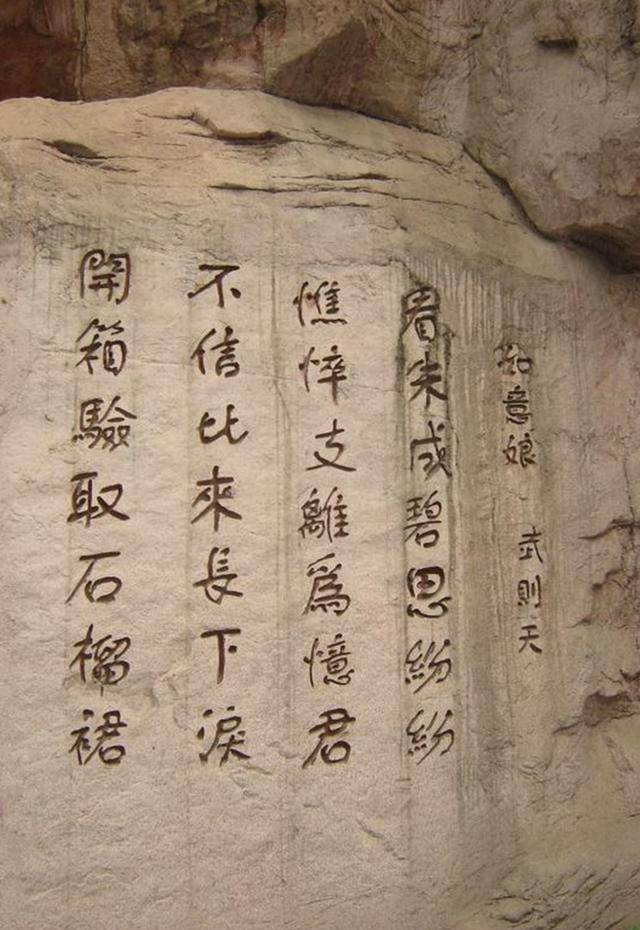 如意娘 武則天
看朱成碧思紛紛
憔悴支離爲憶君
不信比來長下淚
開箱驗取石榴裙